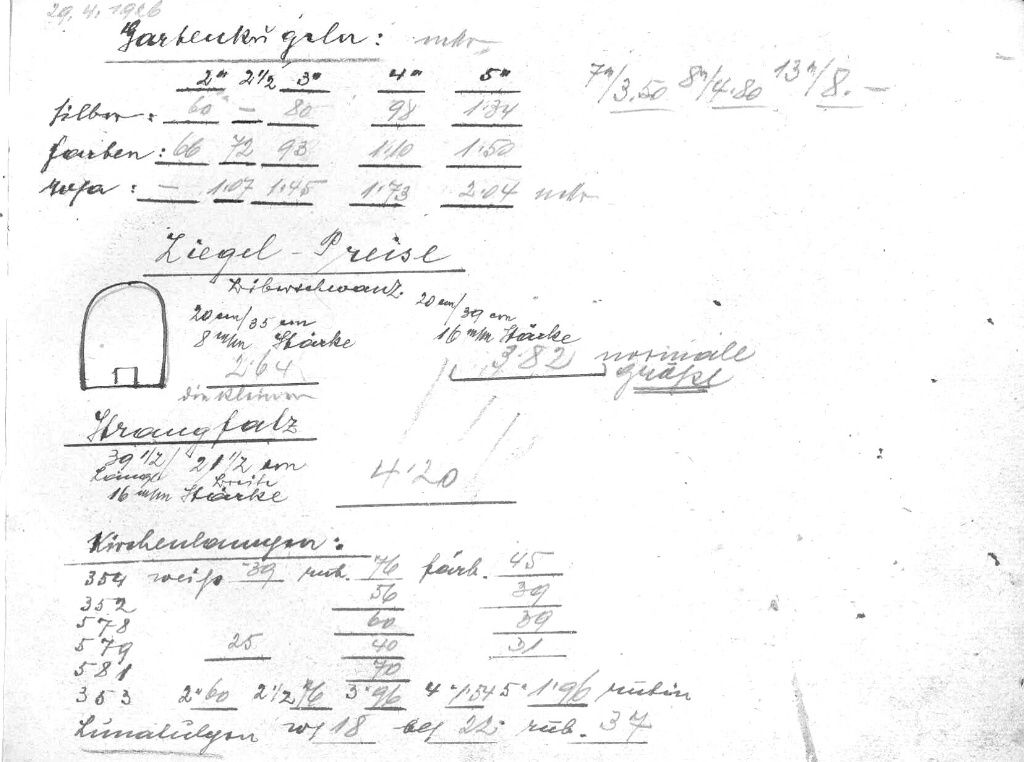 29. 4. 1926
Gartenkugeln:
2" 2 1/2 3" 4" 5"
7"/3.50 8"/4.80 13"/8.–
silber: 60 – 80 98 1·34
farben: 66 72 93 1·10 1·50
rosa: – 1·07 1·45 1·73 2·04
Ziegel-Preise
Biberschwanz.
20 cm/35 cm
8 m/m Stärke
2·64
die kleinen
20 cm/39 cm
16 m/m Stärke
3·82 normale
größe
Strangfalz
39 1/2 / 21 1/2 cm
Länge Breite
16 m/m Stärke
4·20
Kirchenlampen:
354 weiß 39 rub. 76 färb. 45
352 56 39
578 60 39
579 25 40 31
581 70
353 2" 60 2 1/2 76 3" 96 4" 1·54 5" 1·96 rubin
18 22 rub. 37